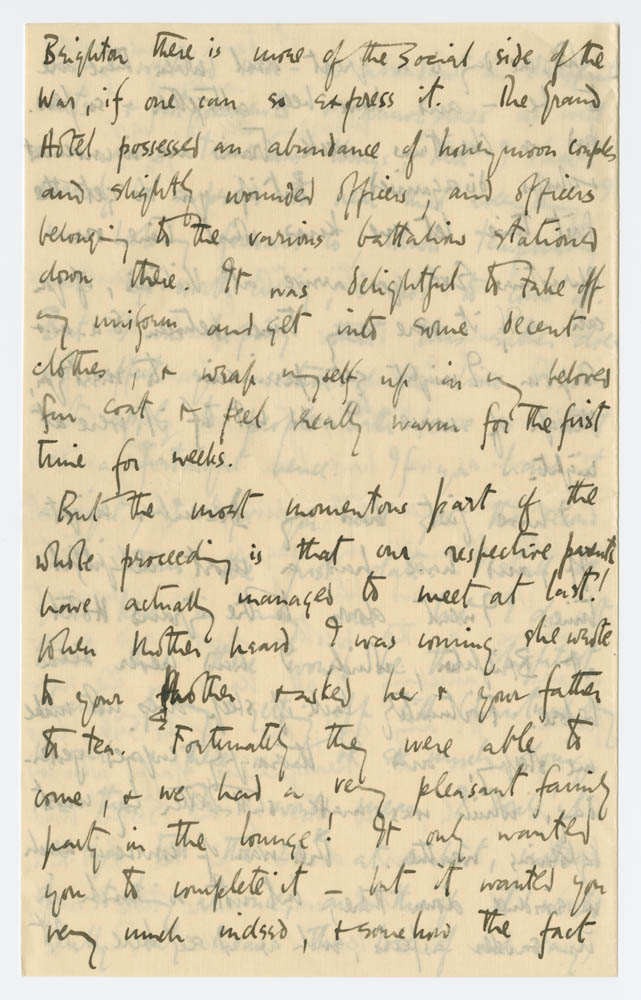 Brighton there is more of the social side of the
War, if one can so express it. The Grand
Hotel possessed an abundance of honeymoon couples
and slightly wounded officers, and officers
belonging to the various battalions stationed
down there. It was delightful to take off
my uniform and get into some decent
clothes, & wrap myself up in my beloved
fur coat & feel really warm for the first
time for weeks.
But the most momentous part of the
whole proceeding is that our respective parents
have actually managed to meet at last!
When Mother heard I was coming she wrote
to your Mother & asked her & your father
to tea. Fortunately they were able to
come, & we had a very pleasant family
party in the lounge! It only wanted
you to complete it – but it wanted you
very much indeed, & somehow the fact